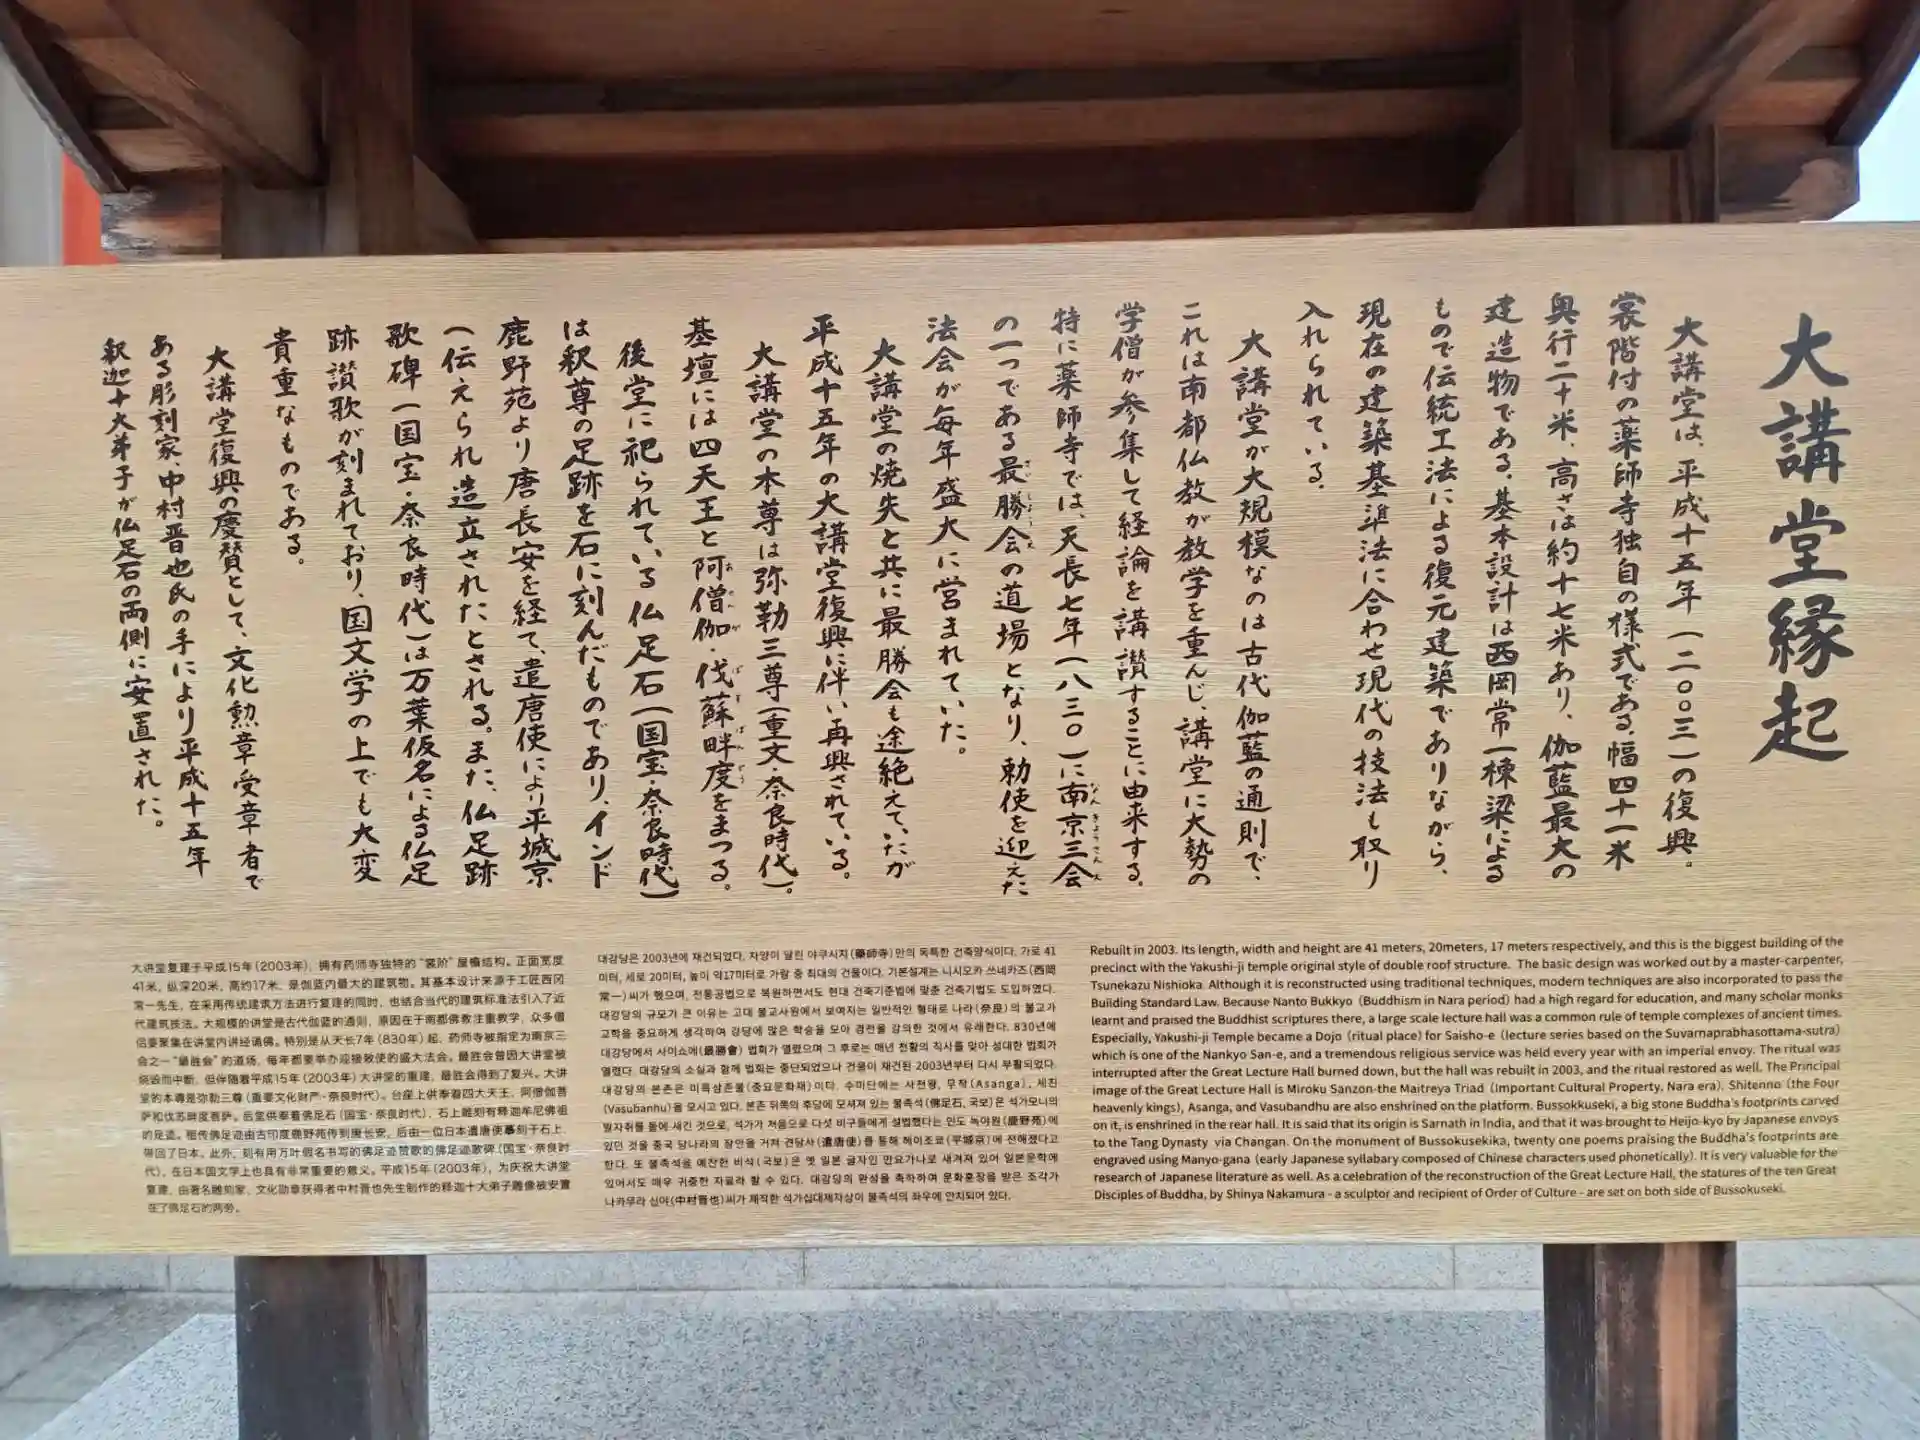 大講堂縁起
大講堂は、平成十五年(二〇〇三)の復興。
裳階付の薬師寺独自の様式である。幅四十一米
奥行二十米、高さは約十七米あり、伽藍最大の
建造物である。基本設計は西岡常一棟梁による
もので伝統工法による復元建築でありながら、
現在の建築基準法に合わせ現代の技法も取り
入れられている。
大講堂が大規模なのは古代伽藍の通則で、
これは南都仏教が教学を重んじ、講堂に大勢の
学僧が参集して経論を講讃することに由来する。
特に薬師寺では、天長七年(八三〇)に南京三会
の一つである最勝会の道場となり、勅使を迎えた
法会が毎年盛大に営まれていた。
大講堂の焼失と共に最勝会も途絶えていたが
平成十五年の大講堂復興に伴い再興されている。
大講堂の本尊は弥勒三尊(重文・奈良時代)。
基壇には四天王と阿僧伽・伐蘇畔度をまつる。
後堂に祀られている仏足石(国宝・奈良時代)
は釈尊の足跡を石に刻んだものであり、インド
鹿野苑より唐長安を経て、遣唐使により平城京
(伝えられ造立されたとされる。また、仏足跡
歌碑(国宝・奈良時代)は万葉仮名による仏足
跡讃歌が刻まれており、国文学の上でも大変
貴重なものである。
大講堂復興の慶賛として、文化勲章受章者で
ある彫刻家、中村晋也氏の手により平成十五年
釈迦十大弟子が仏足石の両側に安置された。
大讲堂复建于平成15年(2003年)，拥有药师寺独特的“裳阶”屋檐结构。正面宽度
41米，纵深20米，高约17米，是伽蓝内最大的建筑物。其基本设计来源于工匠西冈
常一先生，在采用传统建筑方法进行复建的同时，也结合当代的建筑标准法引入了近
代建筑技法。大规模的讲堂是古代伽蓝的通则，原因在于南都佛教注重教学，众多僧
侣要聚集在讲堂内讲经诵佛。特别是从天长7年(830年)起，药师寺被指定为南京三
会之一“最胜会”的道场，每年都要举办迎接敕使的盛大法会。最胜会曾因大讲堂被
烧毁而中断，但伴随着平成15年(2003年)大讲堂的重建，最胜会得到了复兴。大讲
堂的本尊是弥勒三尊(重要文化财产·奈良时代)。台座上供奉着四大天王，阿僧伽菩
萨和伐苏畔度菩萨。后堂供奉着佛足石(国宝·奈良时代)，石上雕刻有释迦牟尼佛祖
的足迹。据传佛足迹由古印度鹿野苑传到唐长安，后由一位日本遣唐使摹刻于石上，
带回了日本。此外，刻有用万叶假名书写的佛足迹赞歌的佛足迹歌碑(国宝·奈良时
代)，在日本国文学上也具有非常重要的意义。平成15年(2003年)，为庆祝大讲堂
复建，由著名雕刻家，文化勋章获得者中村晋也先生制作的释迦十大弟子雕像被安置
在了佛足石的两旁。
대강당은 2003년에 재건되었다. 차양이 달린 야쿠시지(藥師寺)만의 독특한 건축양식이다. 가로 41
미터, 세로 20미터, 높이 약17미터로 가람 중 최대의 건물이다. 기본설계는 니시오카 쓰네카즈(西岡
常一)씨가 했으며, 전통공법으로 복원하면서도 현대 건축기준법에 맞춘 건축기법도 도입하였다.
대강당의 규모가 큰 이유는 고대 불교사원에서 보여지는 일반적인 형태로 나라(奈良)의 불교가
교학을 중요하게 생각하여 강당에 많은 학승을 모아 경전을 강의한 것에서 유래한다. 830년에
대강당에서 사이쇼에(最勝會) 법회가 열렸으며 그 후로는 매년 천황의 칙사를 맞아 성대한 법회가
열렸다. 대강당의 소실과 함께 법회는 중단되었으나 건물이 재건된 2003년부터 다시 부활되었다.
대강당의 본존은 미륵삼존불(중요문화재)이다. 수미단에는 사천왕, 무착(Asanga), 세친
(Vasubanhu)을 모시고 있다. 본존 뒤쪽의 후당에 모셔져 있는 불족석(佛足石, 국보)은 석가모니의
발자취를 돌에 새긴 것으로, 석가가 처음으로 다섯 비구들에게 설법했다는 인도 녹야원(鹿野苑)에
있던 것을 중국 당나라의 장안을 거쳐 견당사(遣唐使)를 통해 헤이조쿄(平城京)에 전해졌다고
한다. 또 불족석을 예찬한 비석(국보)은 옛 일본 글자인 만요가나로 새겨져 있어 일본문학에
있어서도 매우 귀중한 자료라 할 수 있다. 대강당의 완성을 축하하며 문화훈장을 받은 조각가
나카무라 신야(中村晋也)씨가 제작한 석가십대제자상이 불족석의 좌우에 안치되어 있다.
Rebuilt in 2003. Its length, width and height are 41 meters, 20meters, 17 meters respectively, and this is the biggest building of the
precinct with the Yakushi-ji temple original style of double roof structure. The basic design was worked out by a master-carpenter,
Tsunekazu Nishioka. Although it is reconstructed using traditional techniques, modern techniques are also incorporated to pass the
Building Standard Law. Because Nanto Bukkyo (Buddhism in Nara period) had a high regard for education, and many scholar monks
learnt and praised the Buddhist scriptures there, a large scale lecture hall was a common rule of temple complexes of ancient times.
Especially, Yakushi-ji Temple became a Dojo (ritual place) for Saisho-e (lecture series based on the Suvarnaprabhasottama-sutra)
which is one of the Nankyo San-e, and a tremendous religious service was held every year with an imperial envoy. The ritual was
interrupted after the Great Lecture Hall burned down, but the hall was rebuilt in 2003, and the ritual restored as well. The Principal
image of the Great Lecture Hall is Miroku Sanzon-the Maitreya Triad (Important Cultural Property, Nara era). Shitenno (the Four
heavenly kings), Asanga, and Vasubandhu are also enshrined on the platform. Bussokkuseki, a big stone Buddha's footprints carved
on it, is enshrined in the rear hall. It is said that its origin is Sarnath in India, and that it was brought to Heijo-kyo by Japanese envoys
to the Tang Dynasty via Changan. On the monument of Bussokusekika, twenty one poems praising the Buddha's footprints are
engraved using Manyo-gana (early Japanese syllabary composed of Chinese characters used phonetically). It is very valuable for the
research of Japanese literature as well. As a celebration of the reconstruction of the Great Lecture Hall, the statures of the ten Great
Disciples of Buddha, by Shinya Nakamura - a sculptor and recipient of Order of Culture - are set on both side of Bussokuseki.